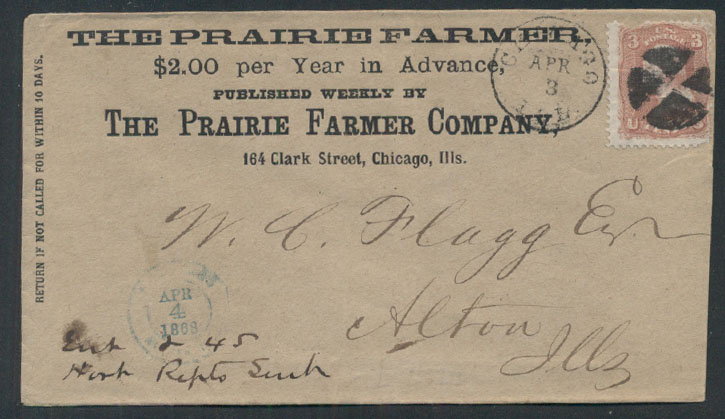 THE PRAIRIE FARMER,
$2.00 per Year in Advance,
PUBLISHED WEEKLY BY
THE PRAIRIE FARMER COMPANY,
164 Clark Street, Chicago, Ills.
RETURN IF NOT CALLED FOR WITHIN 10 DAYS.
CHICAGO
APR
3
ILL.
3 3
U.S.
POSTAGE
U
W. C. Flagg Esqr
Alton
Ills
APR
4
1868
2 45
Hort Repts